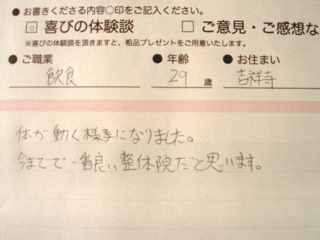 ●お書きくださる内容○印をご記入ください。
☑ 喜びの体験談 □ ご意見・ご感想な
※喜びの体験談を頂きますと、粗品プレゼントをご用意いたします。
●ご職業 ●年齢 ●お住まい
飲食 29 歳 吉祥寺
体が動く様手になりました。
今までで一番良い整体院だと思います。